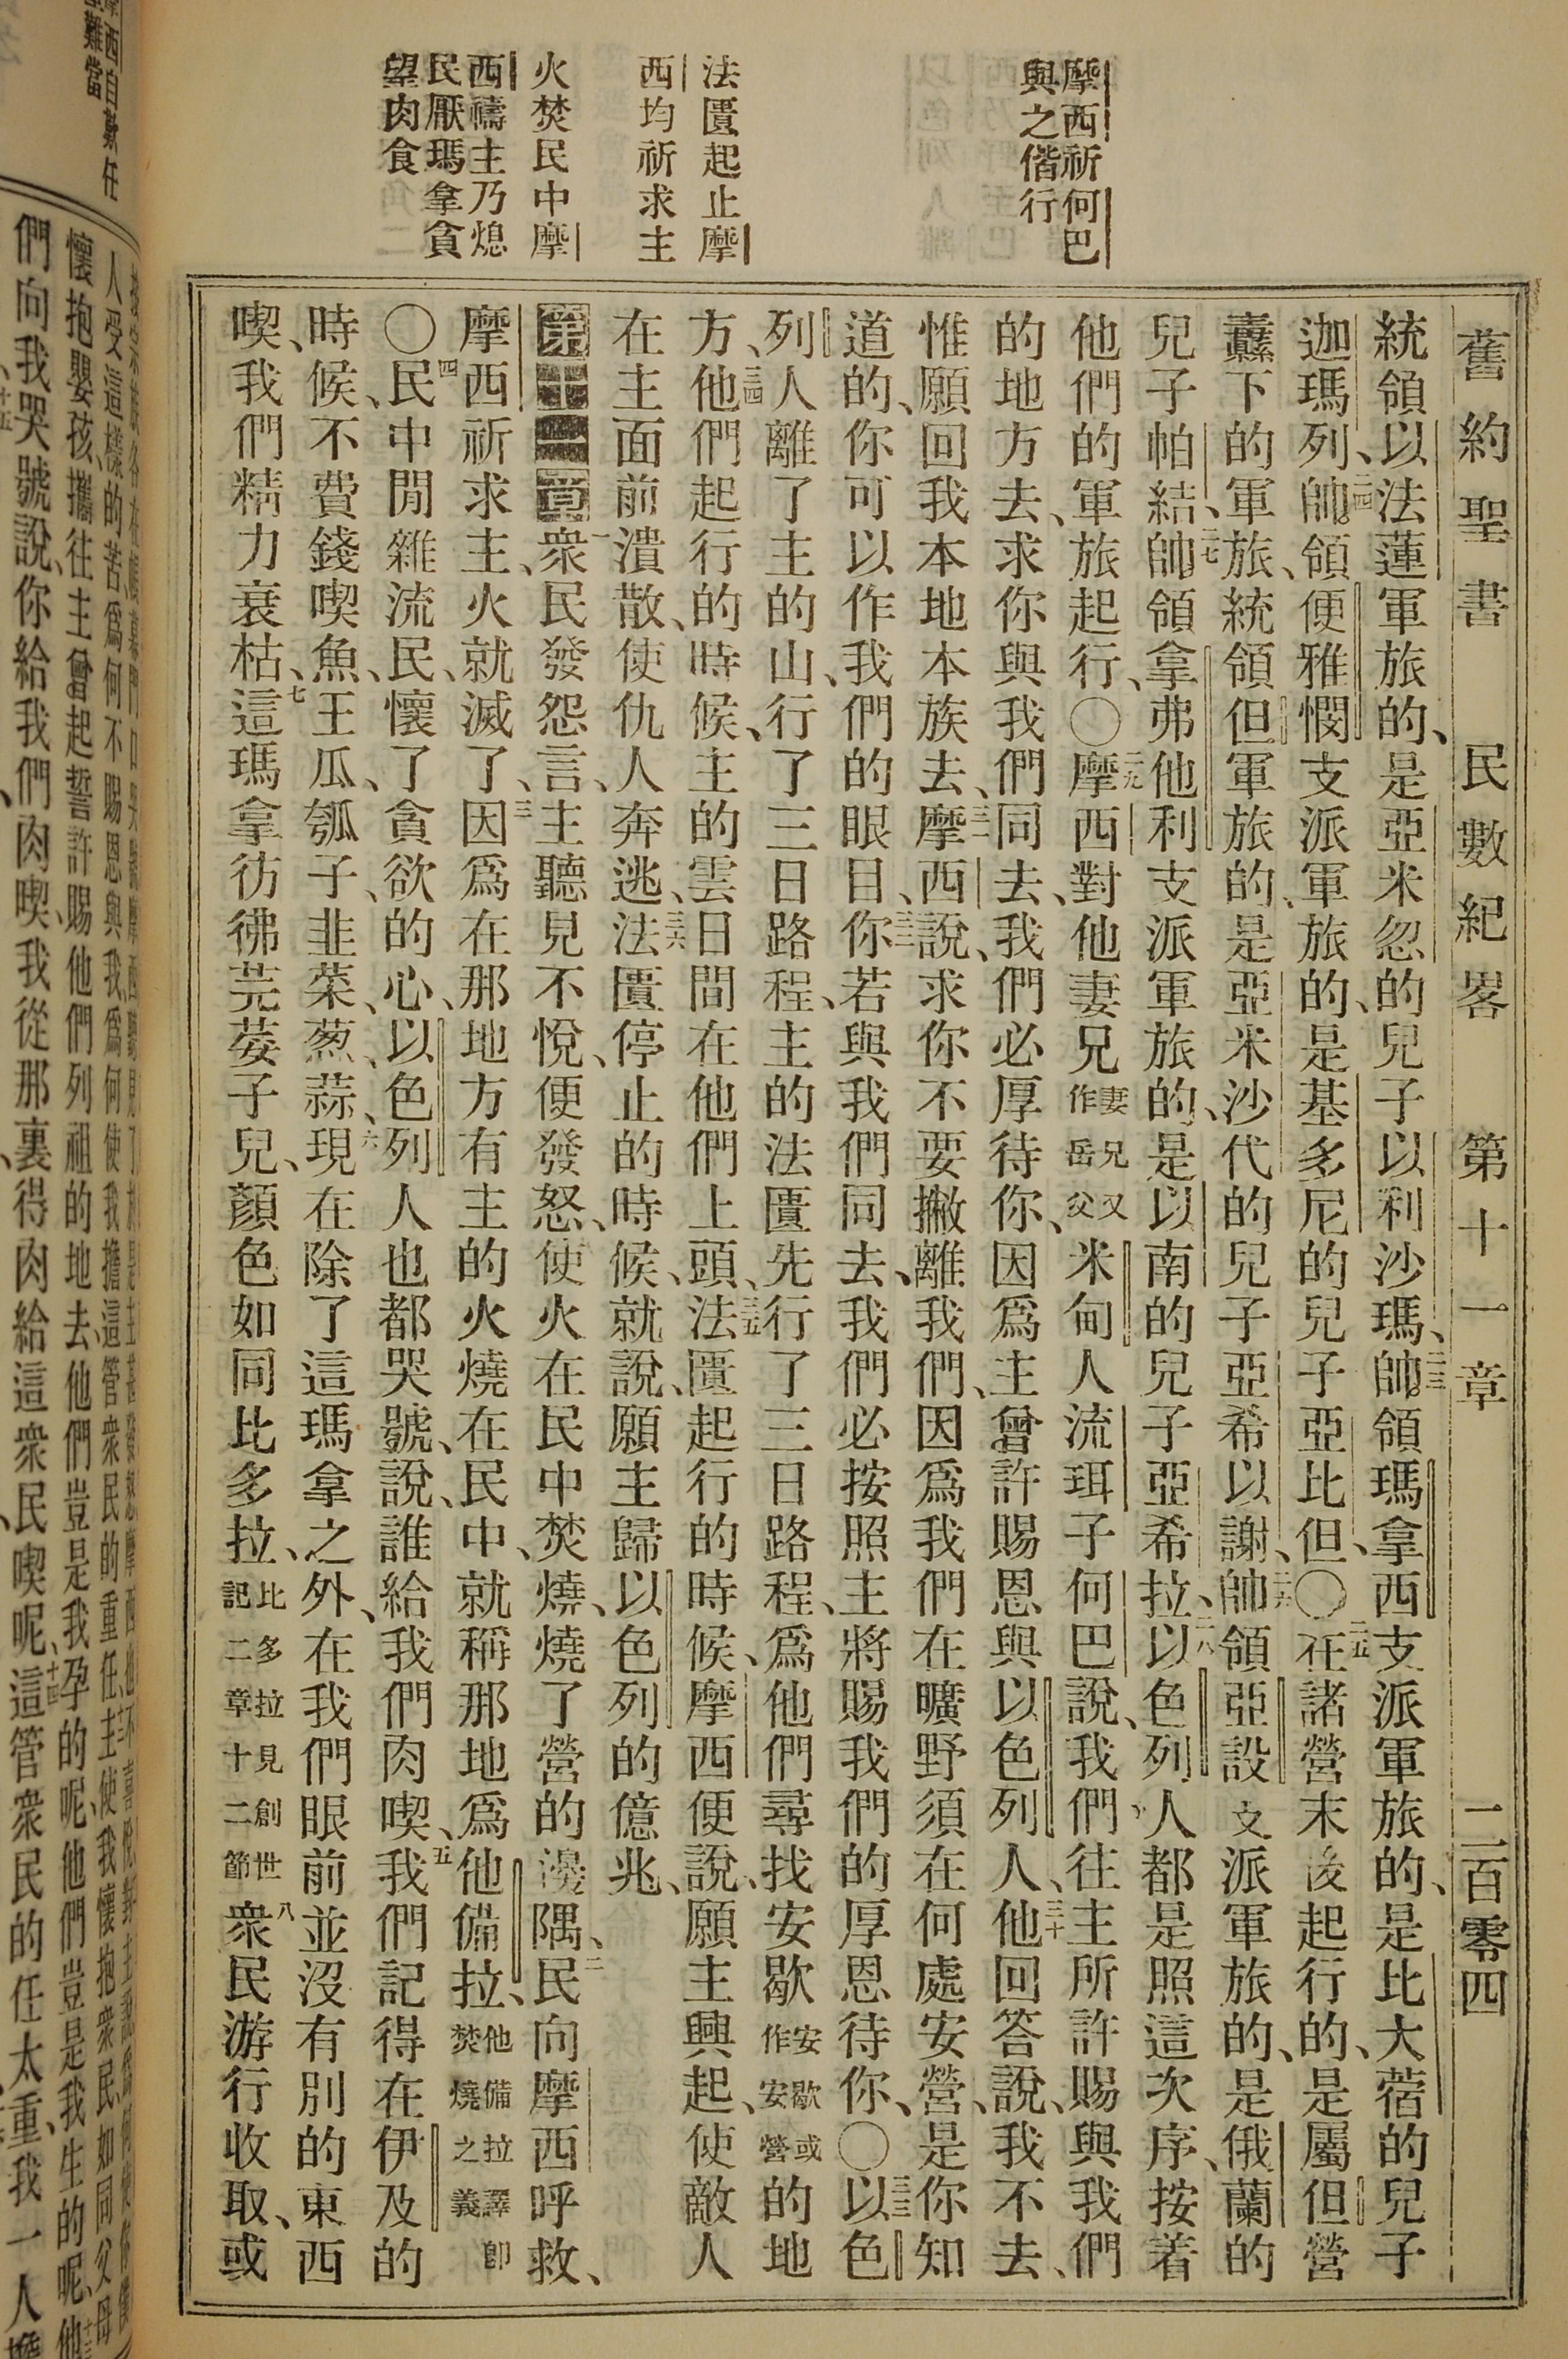 舊約聖書 民數紀畧 第十一章 二百零四
摩西祈何巴
與之偕行
法匱起止摩
西均祈求主
火焚民中摩
西禱主乃熄
民厭瑪拿貪
望肉食
統領以法蓮軍旅的、是亞米忽的兒子以利沙瑪、二三帥領瑪拿西支派軍旅的、是比大蓿的兒子
迦瑪列、二四帥領便雅憫支派軍旅的、是基多尼的兒子亞比但、〇二五在諸營末後起行的、是屬但營
纛下的軍旅、統領但軍旅的、是亞米沙代的兒子亞希以謝、二六帥領亞設支派軍旅的、是俄蘭的
兒子帕結、二七帥領拿弗他利支派軍旅的、是以南的兒子亞希拉、二八以色列人都是照這次序、按着
他們的軍旅起行、〇二九摩西對他妻兄妻兄又作岳父米甸人流珥子何巴說、我們往主所許賜與我們
的地方去、求你與我們同去、我們必厚待你、因爲主曾許賜恩與以色列人、三十他回答說、我不去、
惟願回我本地本族去、三一摩西說、求你不要撇離我們、因爲我們在曠野須在何處安營、是你知
道的、你可以作我們的眼目、三二你若與我們同去、我們必按照主將賜我們的厚恩待你、〇三三以色
列人離了主的山、行了三日路程、主的法匱先行了三日路程、爲他們尋找安歇安歇或作安營的地
方、三四他們起行的時候、主的雲日間在他們上頭、三五法匱起行的時候、摩西便說、願主興起、使敵人
在主面前潰散、使仇人奔逃、三六法匱停止的時候、就說、願主歸以色列的億兆、
第十一章 一衆民發怨言、主聽見不悅、便發怒、使火在民中焚燒、燒了營的邊隅、二民向摩西呼救、
摩西祈求主、火就滅了、三因爲在那地方有主的火燒在民中、就稱那地爲他備拉、他備拉譯即焚燒之義
〇四民中閒雜流民、懷了貪欲的心、以色列人也都哭號、說、誰給我們肉喫、五我們記得在伊及的
時候、不費錢喫魚、王瓜、瓠子、韭菜、葱、蒜、六現在除了這瑪拿之外、在我們眼前並沒有別的東西
喫、我們精力衰枯、七這瑪拿彷彿芫荽子兒、顏色如同比多拉、比多拉見創世記二章十二節八衆民游行收取、或
懷抱嬰孩、攜往主曾起誓許賜他們列祖的地去、他們豈是我孕的呢、他們豈是我生的呢、他
們向我哭號說、你給我們肉喫、我從那裏得肉給這衆民喫呢、十四這管衆民的任太重、我一人